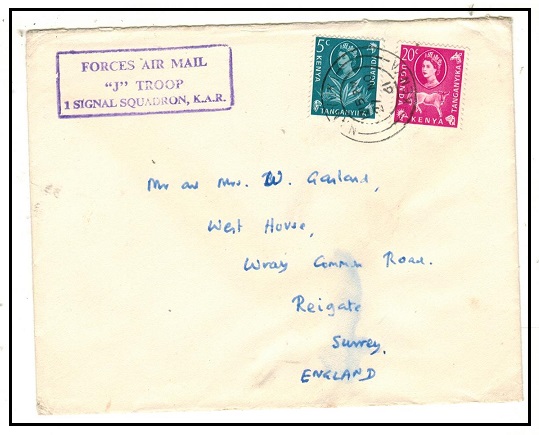 FORCES AIR MAIL
"J" TROOP
1 SIGNAL SQUADRON, K.A.R.
5c
KENYA
UGANDA
TANGANYIKA
20c
UGANDA
KENYA
TANGANYIKA
Mr and Mrs. W. Garland,
West House,
Wray Common Road.
Reigate
Surrey.
ENGLAND